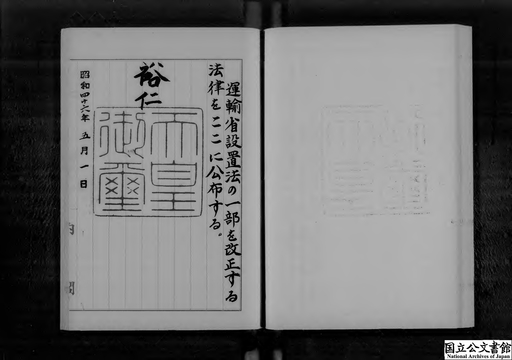 運輸省設置法の一部を改正する
法律をここに公布する。
裕仁
天皇
御璽
昭和四十六年五月一日
国立公文書館
National Archives of Japan